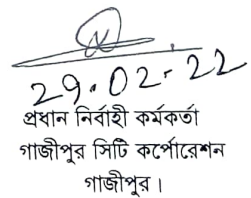 29.02.22
প্রধান নির্বাহী কর্মকর্তা
গাজীপুর সিটি কর্পোরেশন
গাজীপুর।